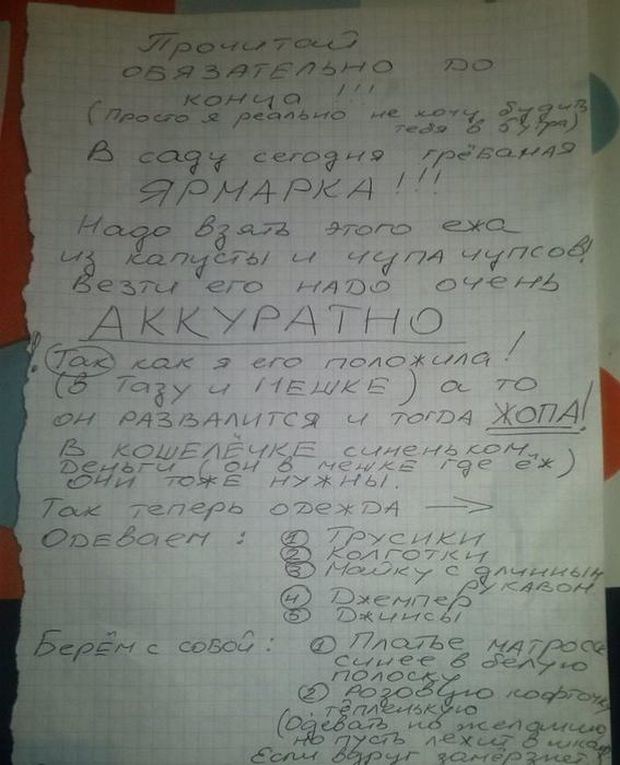 Прочитай
ОБЯЗАТЕЛЬНО ДО
КОНЦА !!!
(Просто я реально не хочу будить
тебя в 6 утра)
В саду сегодня грёбаная
ЯРМАРКА!!!
Надо взять этого ежа
из капусты и чупа чупсов!
Везти его надо очень
АККУРАТНО
! Так как я его положила!
(В ТАЗУ и МЕШКЕ) а то
он РАЗВАЛИТСЯ и тогда ЖОПА!
В КОШЕЛЁЧКЕ синеньком
Деньги (он в мешке где ёж)
они тоже нужны.
Так теперь одежда →
Одеваем: ① Трусики
② Колготки
③ Майку с длинным
рукавом
④ Джемпер
⑤ Джинсы
Берём с собой: ① Платье матроса
синее в белую
полоску
② розовую кофточку
тёпленькую
(Одевать по желанию
но пусть лежит в шкафу
Если вдруг замёрзнет)